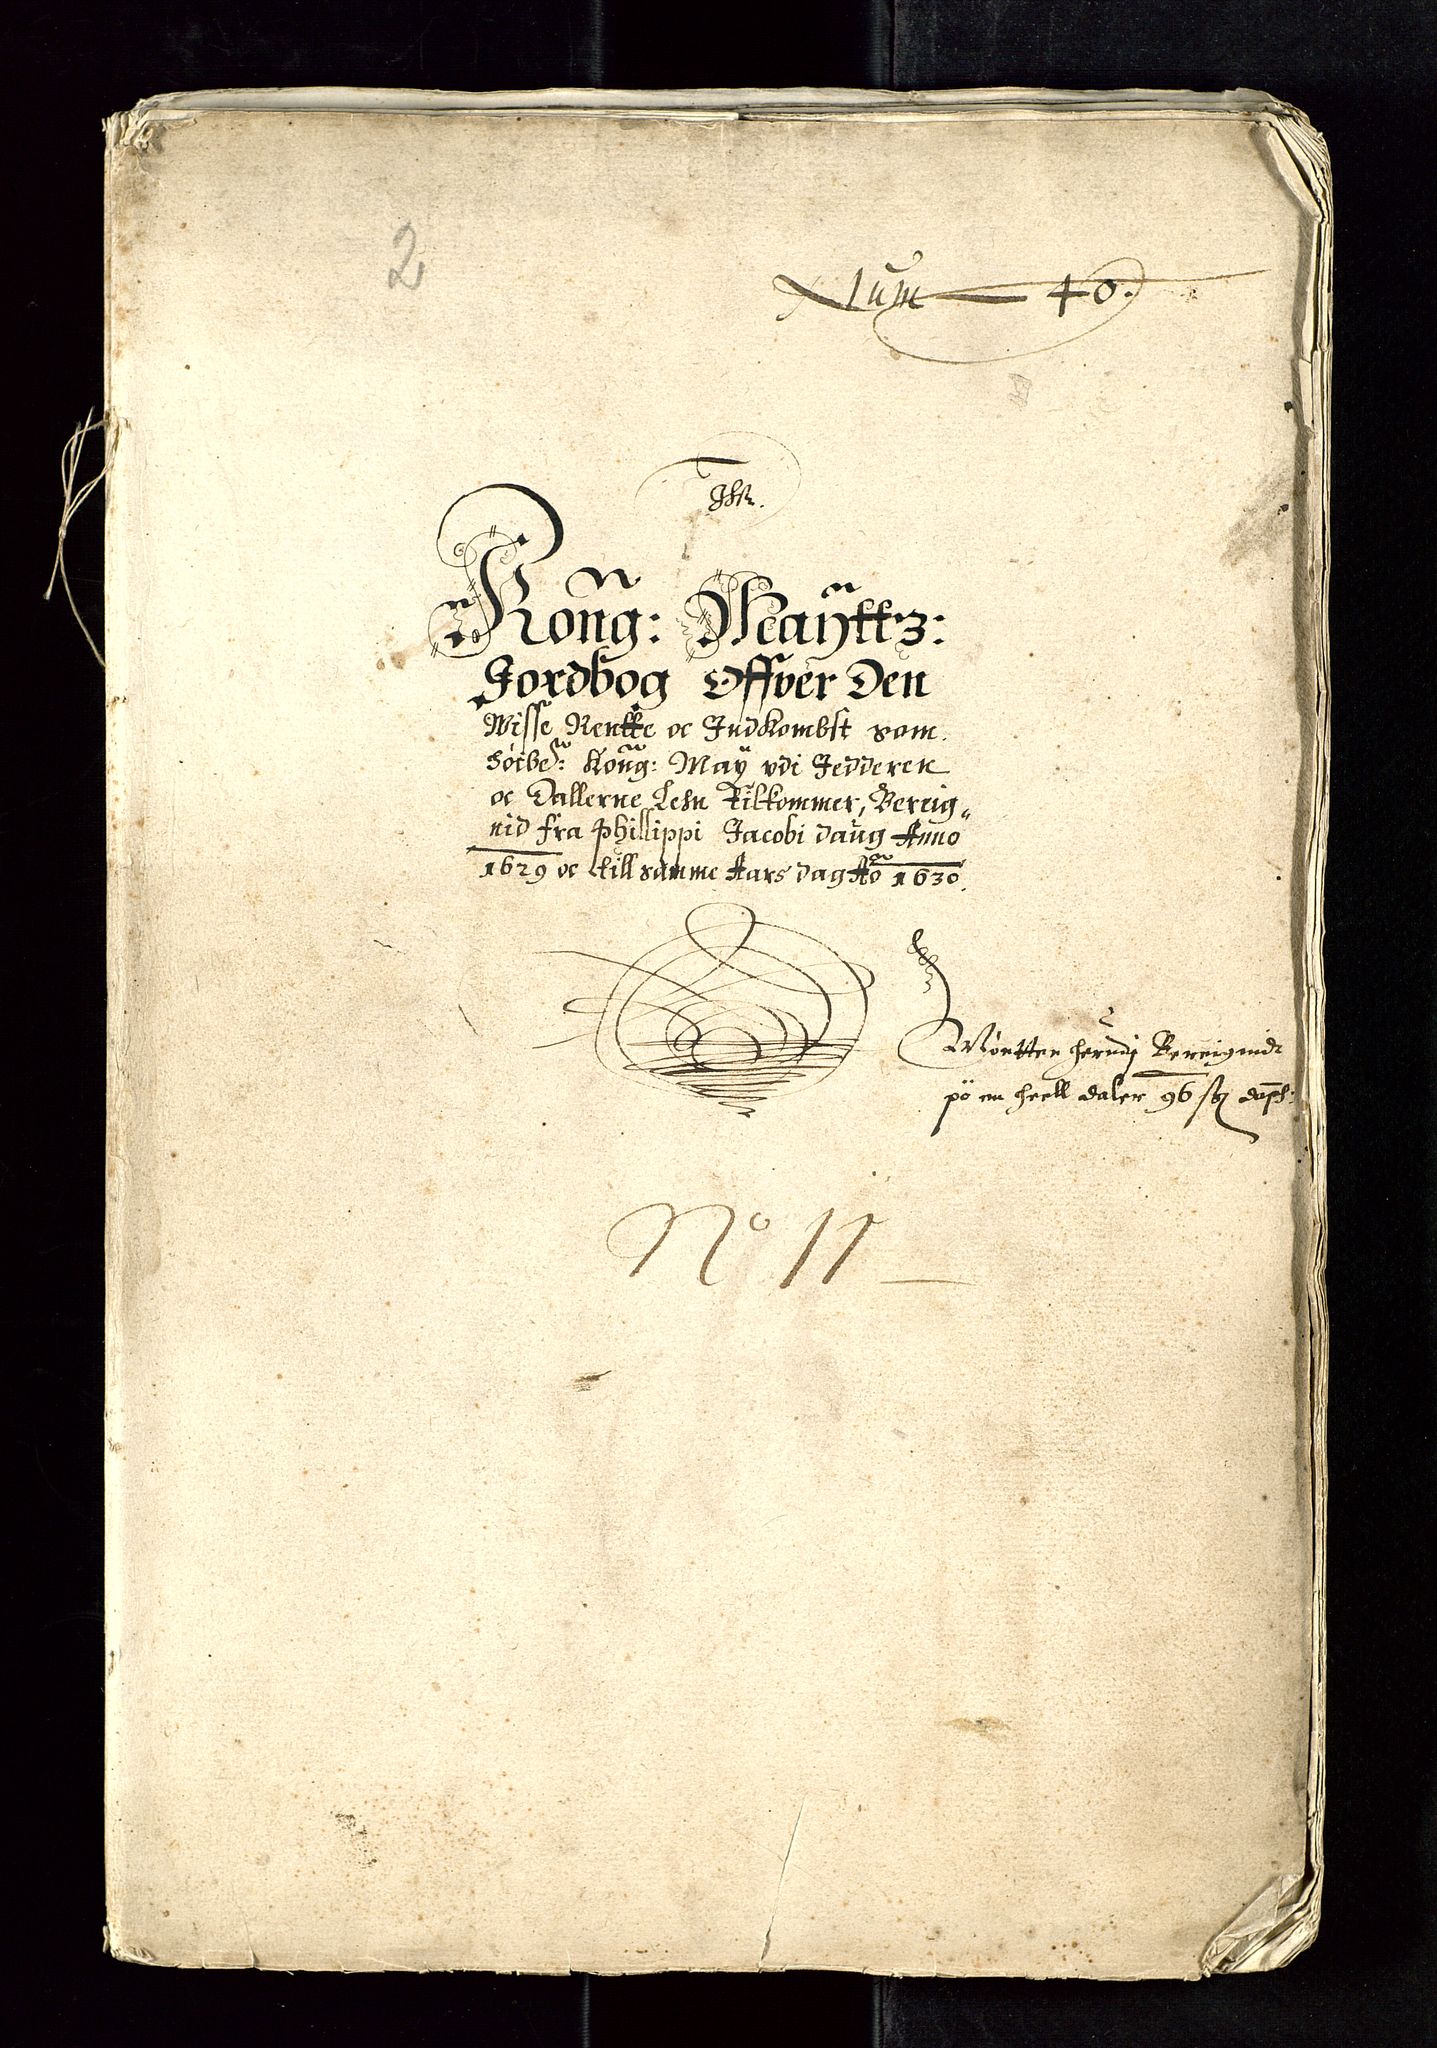 2
Num 40.
Kong: Mayttz:
Jordbog Offver Den
Wisse Rentte oc Indkombst som
höibe: Kong: May udi Jedderen
oc Dallerne Lehn Tilkommer, Bereig„
nid fra Philippi Jacobi daug Anno
1629 oc till samme Aars dag Ao 1630.
Möntten herudj Bereignidt
pö en heell daler 96 ß
No 11